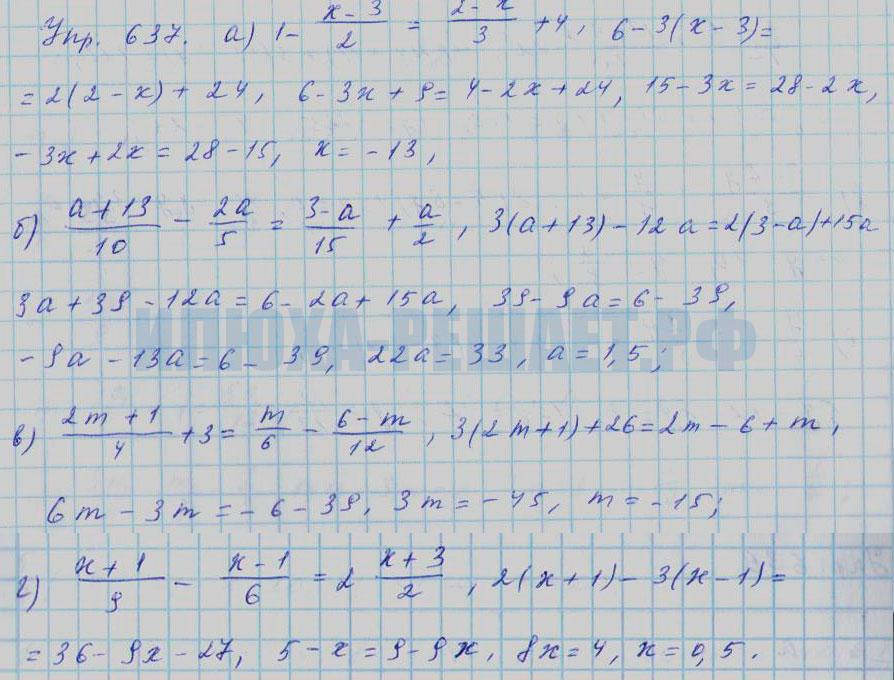 Упр. 637. а) 1 - (x-3)/2 = (2-x)/3 + 4, 6-3(x-3)=
=2(2-x)+24, 6-3x+9=4-2x+24, 15-3x=28-2x,
-3x+2x=28-15, x=-13,
б) (a+13)/10 - 2a/5 = (3-a)/15 + a/2, 3(a+13)-12a=2(3-a)+15a
3a+39-12a=6-2a+15a, 39-9a=6-39,
ИЛЮХА-РЕШАЕТ.РФ
-9a-13a=6-39, 22a=33, a=1,5;
в) (2m+1)/4 + 3 = m/6 - (6-m)/12, 3(2m+1)+26=2m-6+m,
6m-3m=-6-39, 3m=-45, m=-15;
г) (x+1)/9 - (x-1)/6 = 2 (x+3)/2, 2(x+1)-3(x-1)=
=36-9x-27, 5-x=9-9x, 8x=4, x=0,5.